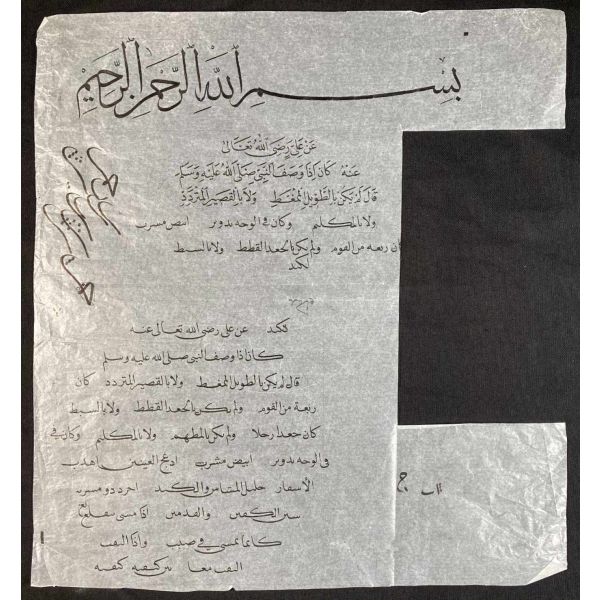 بِسْمِ ٱللَّهِ ٱلرَّحْمَنِ ٱلرَّحِيمِ
عَنْ عَلِىٍّ رَضِىَ اللهُ تَعَالَى
عَنْهُ كَانَ اِذَا وَصَفَ النَّبِىَّ صَلَّى اللهُ عَلَيْهِ وَسَلَّمَ
قَالَ لَمْ يَكُنْ بِالطَّوِيلِ الْمُمَّغِطِ وَلَا بِالْقَصِيرِ الْمُتَرَدِّدِ
ولا بالمكلثم وكان فى الوجه تدوير ابيض مشرب
كان ربعة من القوم ولم يكن بالجعد القطط ولا بالسبط
لكتد
لكتد عن على رضى الله تعالى عنه
كان اذا وصف النبى صلى الله عليه وسلم
قال لم يكن بالطويل الممغط ولا بالقصير المتردد كان
ربعة من القوم ولم يكن بالجعد القطط ولا بالسبط
كان جعدا رجلا ولم يكن بالمطهم ولا بالمكلثم وكان فى
فى الوجه تدوير ابيض مشرب ادعج العينين اهدب
الأشفار جليل المشاش والكتد اجرد ذو مسربة
شثن الكفين والقدمين اذا مشى تقلع
كانما يمشى فى صبب واذا التفت
التفت معا بين كتفيه
ج